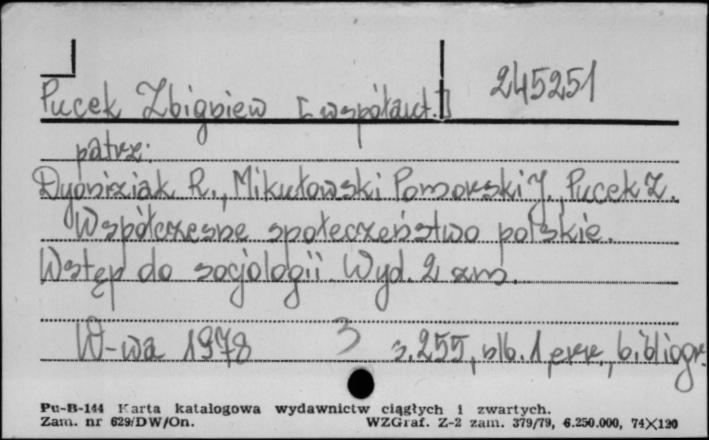 245251
Pucek Zbigniew [współaut.]
patrz:
Dyoniziak R., Mikułowski Pomorski J., Pucek Z.
Współczesne społeczeństwo polskie.
Wstęp do socjologii. Wyd. 2 zm.
W-wa 1978 3 s. 255, nlb. 1, err., bibliogr.
Pu-B-144 Karta katalogowa wydawnictw ciągłych i zwartych.
Zam. nr 629/DW/On. WZGraf. Z-2 zam. 379/79, 6.250.000, 74×120